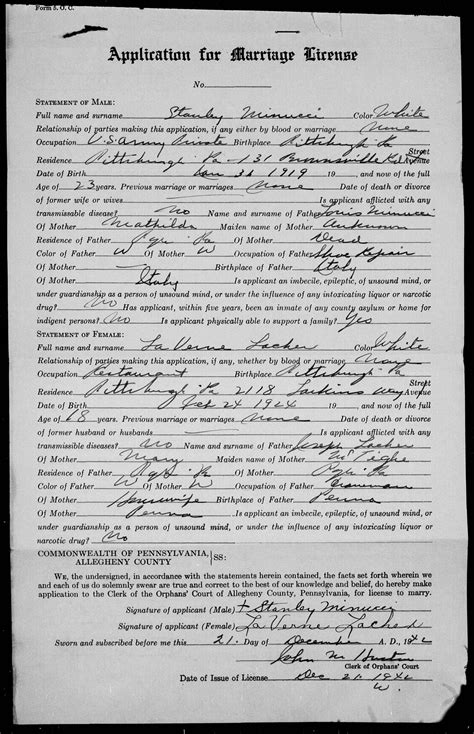 Form 5. O. C.
Application for Marriage License
No.
STATEMENT OF MALE:
Full name and surname Stanley Minucci Color White
Relationship of parties making this application, if any either by blood or marriage None
Occupation U.S. Army Private Birthplace Pittsburgh Pa
Residence Pittsburgh Pa - 131 Brownsville Rd Street Avenue
Date of Birth Jan 31 1919 19 and now of the full
Age of 23 years. Previous marriage or marriages None Date of death or divorce
of former wife or wives Is applicant afflicted with any
transmissible disease? No Name and surname of Father Louis Minucci
Of Mother Mathilda Maiden name of Mother Unknown
Residence of Father Pgh. Pa Of Mother Dead
Color of Father W Of Mother W Occupation of Father Shoe Repair
Of Mother Birthplace of Father Italy
Of Mother Italy Is applicant an imbecile, epileptic, of unsound mind, or
under guardianship as a person of unsound mind, or under the influence of any intoxicating liquor or narcotic
drug? No Has applicant, within five years, been an inmate of any county asylum or home for
indigent persons? No Is applicant physically able to support a family? Yes
STATEMENT OF FEMALE:
Full name and surname La Verne Lacher Color White
Relationship of parties making this application, if any, whether by blood or marriage None
Occupation Restaurant Birthplace Pittsburgh Pa
Residence Pittsburgh Pa 2118 Larkins Way Street Avenue
Date of Birth Feb 24 1924 19 and now of the full
Age of 18 years. Previous marriage or marriages None Date of death or divorce
of former husband or husbands Is applicant afflicted with any
transmissible diseases? No Name and surname of Father Joseph Lacher
Of Mother Mary Maiden name of Mother McTighe
Residence of Father Pgh. Pa Of Mother Pgh. Pa
Color of Father W Of Mother W Occupation of Father
Of Mother Housewife Birthplace of Father Penna
Of Mother Penna Is applicant an imbecile, epileptic, of unsound mind, or
under guardianship as a person of unsound mind, or under the influence of any intoxicating liquor or
narcotic drug? No
COMMONWEALTH OF PENNSYLVANIA, ALLEGHENY COUNTY } SS:
WE, the undersigned, in accordance with the statements herein contained, the facts set forth wherein we
and each of us do solemnly swear are true and correct to the best of our knowledge and belief, do hereby make
application to the Clerk of the Orphans' Court of Allegheny County, Pennsylvania, for license to marry.
Signature of applicant (Male) + Stanley Minucci
Signature of applicant (Female) La Verne Lacher
Sworn and subscribed before me this 21. Day of December A. D., 1942
John M Huston
Clerk of Orphans' Court
Date of Issue of License Dec 21. 1942
W.